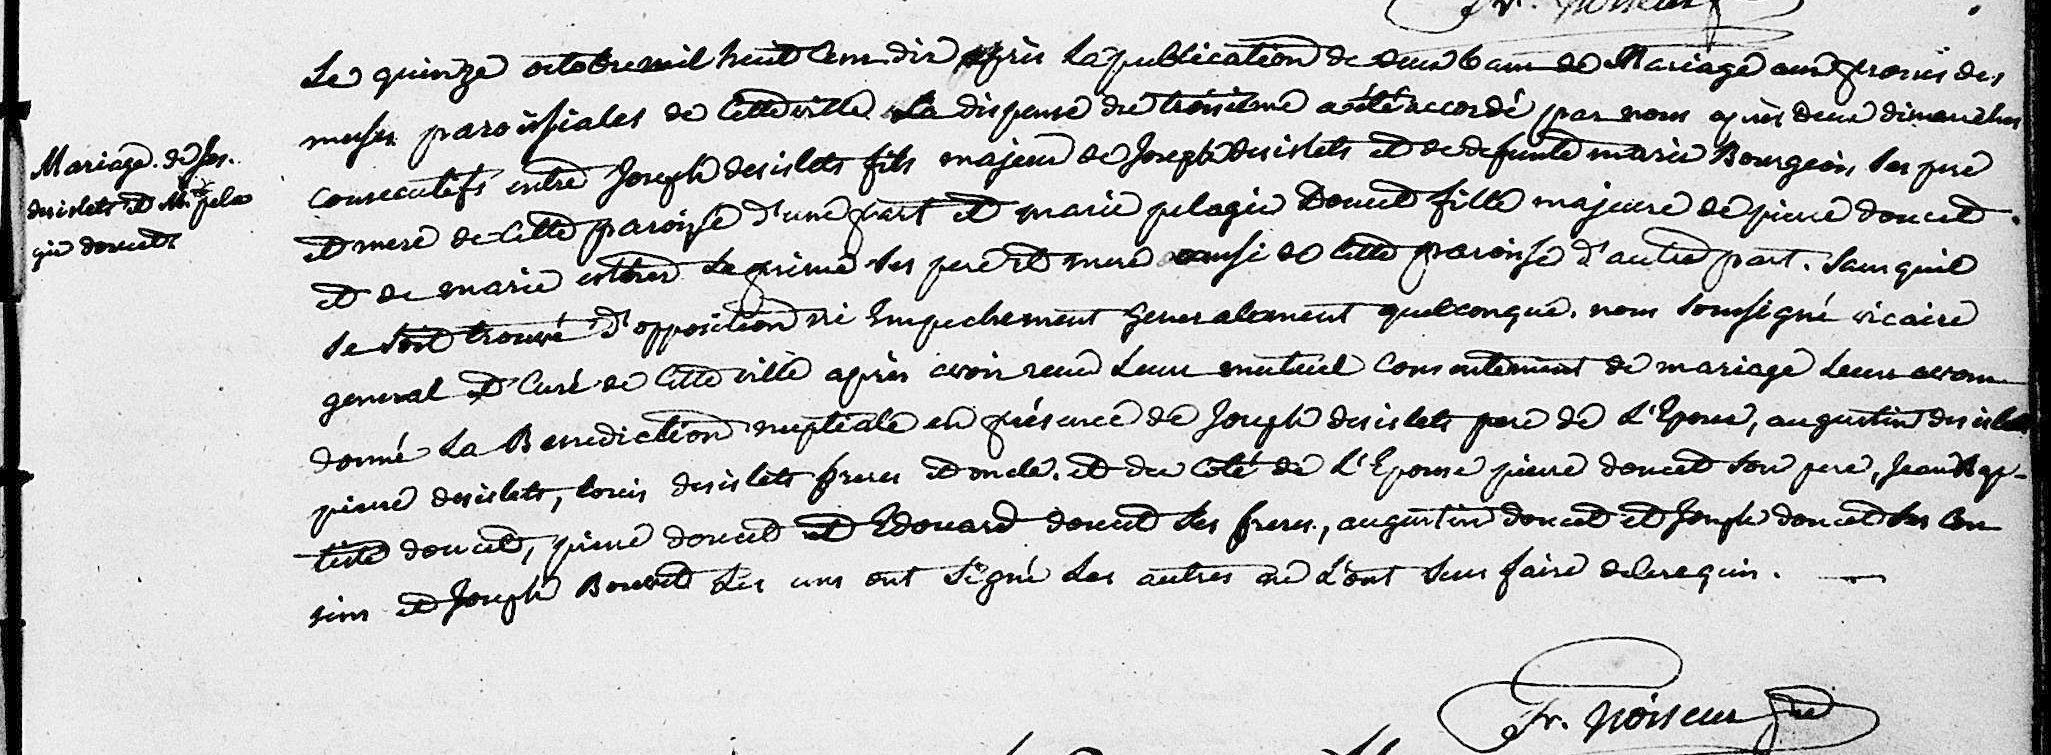 Mariage de Jos.
desislets et M. pela
gie doucet
Le quinze octobre mil huit Cens dix après La publication de deux bans de Mariage aux prones des
messes paroissiales de Cette ville La dispense du troisieme a été accordé par nous après deux dimanches
consecutifs entre Joseph desislets fils majeur de Joseph desislets et de defunte marie Bourgeois, ses pere
et mere de Cette paroisse d'une part et marie pelagie Doucet fille majeure de pierre doucet
et de marie esther La prise ses pere et mere aussi de Cette paroisse d'autre part. Sans quil
se soit trouvé d'opposition ni Empechement generalement quelconque. nous soussigné vicaire
general et Curé de Cette ville après avoir recu Leur mutuel consentement de mariage Leur avons
donné La Benediction nuptiale en présence de Joseph desislets pere de L'Epoux, augustin desislets
pierre desislets, louis desislets freres et oncle. et du Coté de L'Epouse pierre doucet son pere, Jean Bap-
tiste doucet, pierre doucet et Edouard doucet ses freres, augustin doucet et Joseph doucet ses Cou
sins et Joseph Bouvet Les uns ont signé Les autres ne L'ont Seus faire de ce requis.
Fr. Noiseux ptre